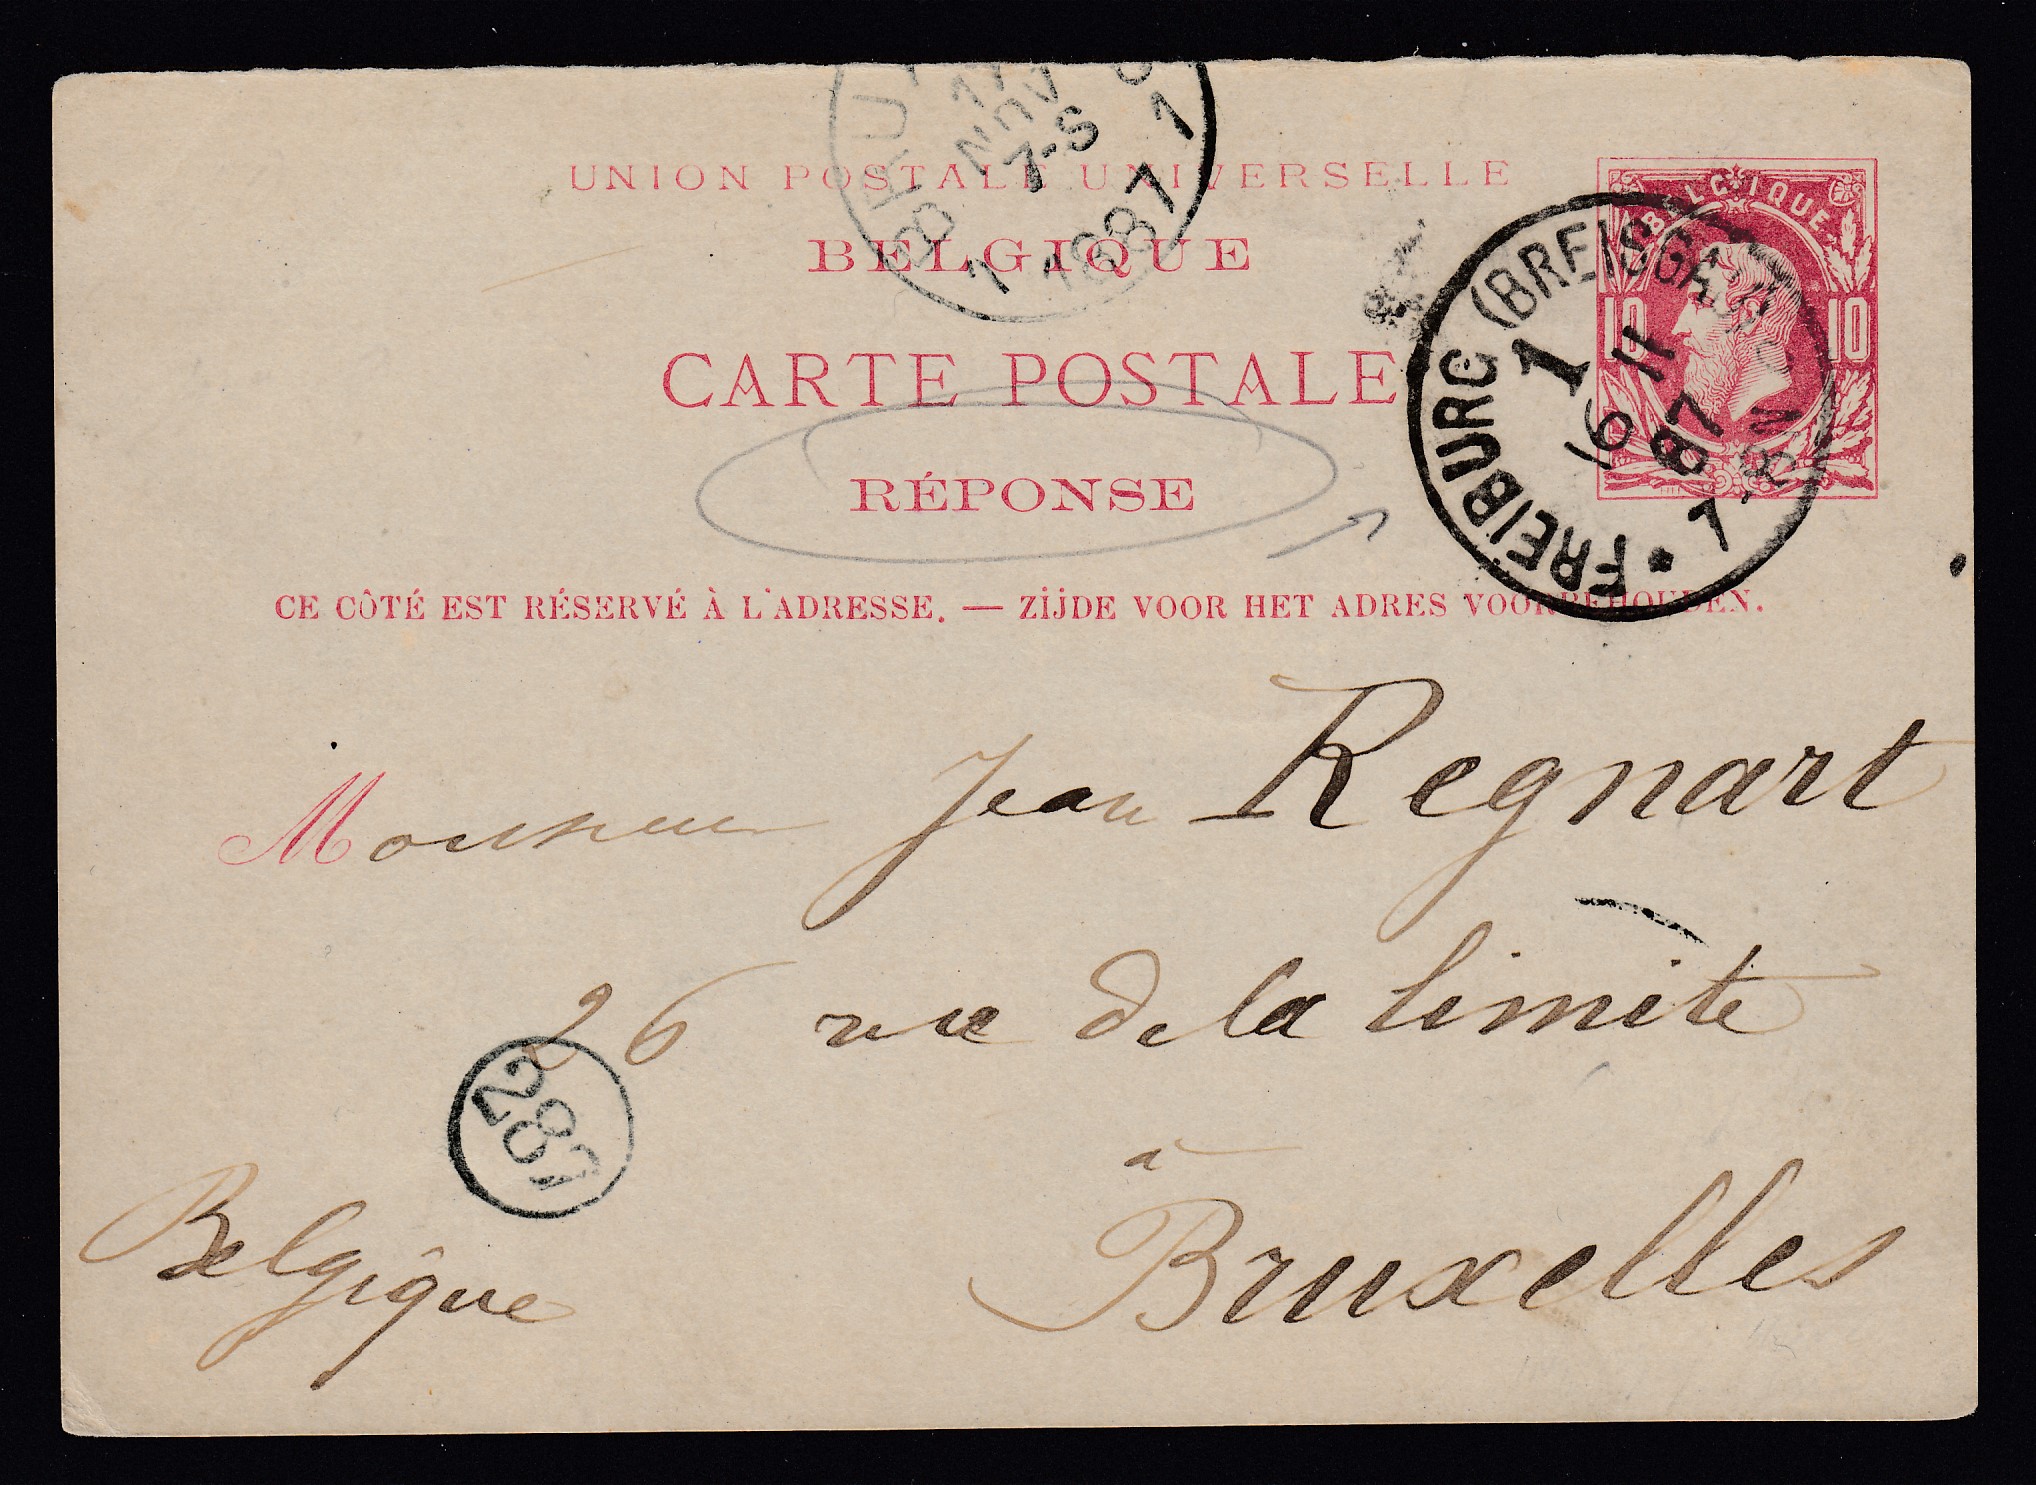 UNION POSTALE UNIVERSELLE
BELGIQUE
CARTE POSTALE
RÉPONSE
CE CÔTÉ EST RÉSERVÉ À L'ADRESSE. — ZIJDE VOOR HET ADRES VOORBEHOUDEN.
BELGIQUE
10 10
FREIBURG (BREISGAU)
1
11
87
7-8N
11
NOV
7-S
1887
1
Monsieur Jean Regnart
26 rue de la limite
à
Bruxelles
Belgique